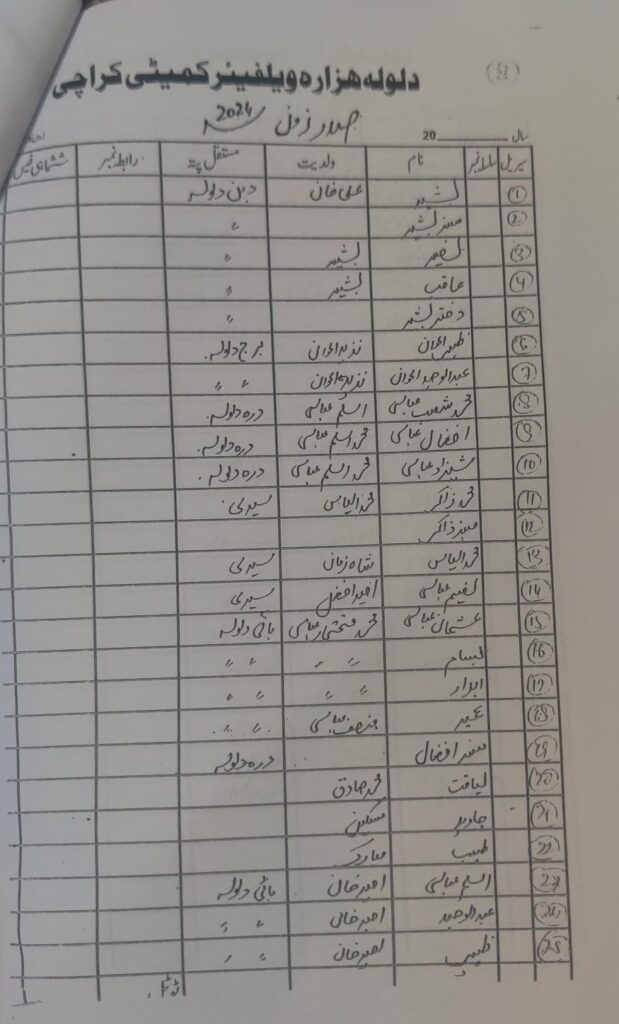 دلولہ ہزارہ ویلفیئر کمیٹی کراچی
صدر زون 2024
سال ــــــــ 20
سیریل نمبر نام ولدیت مستقل پتہ رابطہ نمبر ششماہی فیس
1 بشیر علی خان دبن دلولہ
2 مسز بشیر "
3 نصیر بشیر "
4 عاقب بشیر "
5 دختر بشیر "
6 طیب اعوان نذیر اعوان برج دلولہ
7 عبدالوحید اعوان نذیر اعوان " "
8 محمد شعیب عباسی اسلم عباسی درہ دلولہ
9 افضال عباسی محمد اسلم عباسی درہ دلولہ
10 شہزاد عباسی محمد اسلم عباسی درہ دلولہ
11 محمد ذاکر محمد الیاس
12 مسز ذاکر
13 محمد الیاس شاہ زمان
14 عباسی افضل
15 عثمان عباسی محمد عباسی بانی دلولہ
16 " " " "
17 ابرار " " " "
18 عمیر منصف عباسی " "
19 مسز افضال درہ دلولہ
20 لیاقت محمد صادق
21 جاوید مسکین
22 طیب مبارک
23 اسلم عباسی امیر خان بانی دلولہ
24 عبدالوحید امیر خان " "
25 طیب امیر خان " "